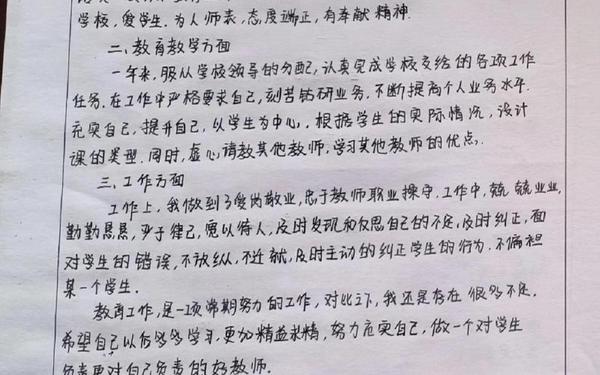 学校，爱学生．为人师表，态度端正，有奉献精神．
二、教育教学方面
一年来，服从学校领导的分配，认真完成学校交给的各项工作
任务．在工作中严格要求自己，刻苦钻研业务，不断提高个人业务水平．
充实自己，提升自己，以学生为中心，根据学生的实际情况，设计
课的类型．同时，虚心请教其他教师，学习其他教师的优点．
三、工作方面
工作上，我做到了爱岗敬业，忠于教师职业操守．工作中，兢兢业业，
勤勤恳恳，严于律己，宽以待人，及时发现和反思自己的不足，及时纠正，面
对学生的错误，不放纵，不迁就，及时主动的纠正学生的行为．不偏袒
某一个学生．
教育工作，是一项常期努力的工作，对比之下，我还是存在很多不足．
希望自己以后多多学习，更加精益求精，努力充实自己，做一个对学生
负责更对自己负责的好教师．